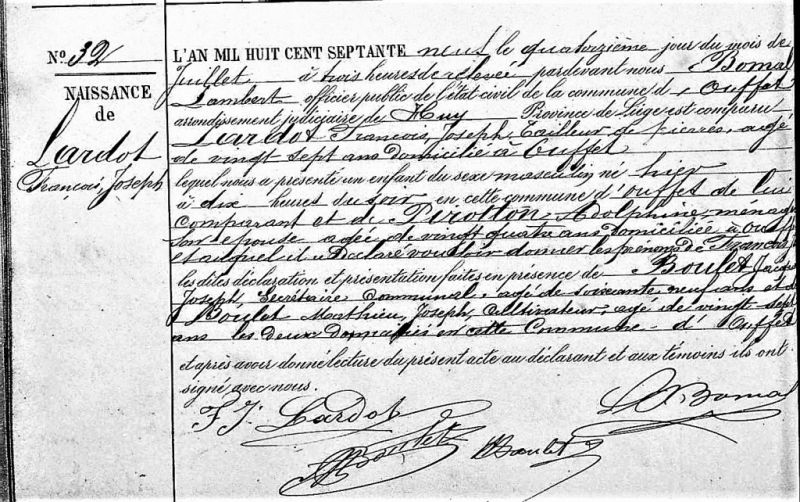 N° 32
NAISSANCE
de
Lardot
François, Joseph
L'AN MIL HUIT CENT SEPTANTE neuf le quatorzième jour du mois de
Juillet à trois heures de relevée pardevant nous Bomal
Lambert officier public de l'état civil de la commune d'Ouffet
arrondissement judiciaire de Huy Province de Liège est comparu
Lardot François, Joseph, Tailleur de pierres, agé
de vingt sept ans domicilié à Ouffet
lequel nous a présenté un enfant du sexe masculin né hier
à dix heures du soir en cette commune d'Ouffet de lui
comparant et de Pirotton, Adolphine, ménag
son épouse agée de vingt quatre ans domiciliée à Ouff
et auquel il a déclaré vouloir donner les prénoms de François
les dites déclaration et présentation faites en présence de Boulet Jacqu
Joseph, Secrétaire Communal, agé de soixante neuf ans et d
Boulet Matthieu, Joseph, Cultivateur, agé de vingt sept
ans les deux domiciliés en cette Commune d'Ouffet
et après avoir donné lecture du présent acte au déclarant et aux témoins ils ont
signé avec nous.
F. J. Lardot
L Bomal
Boulet
Boulet